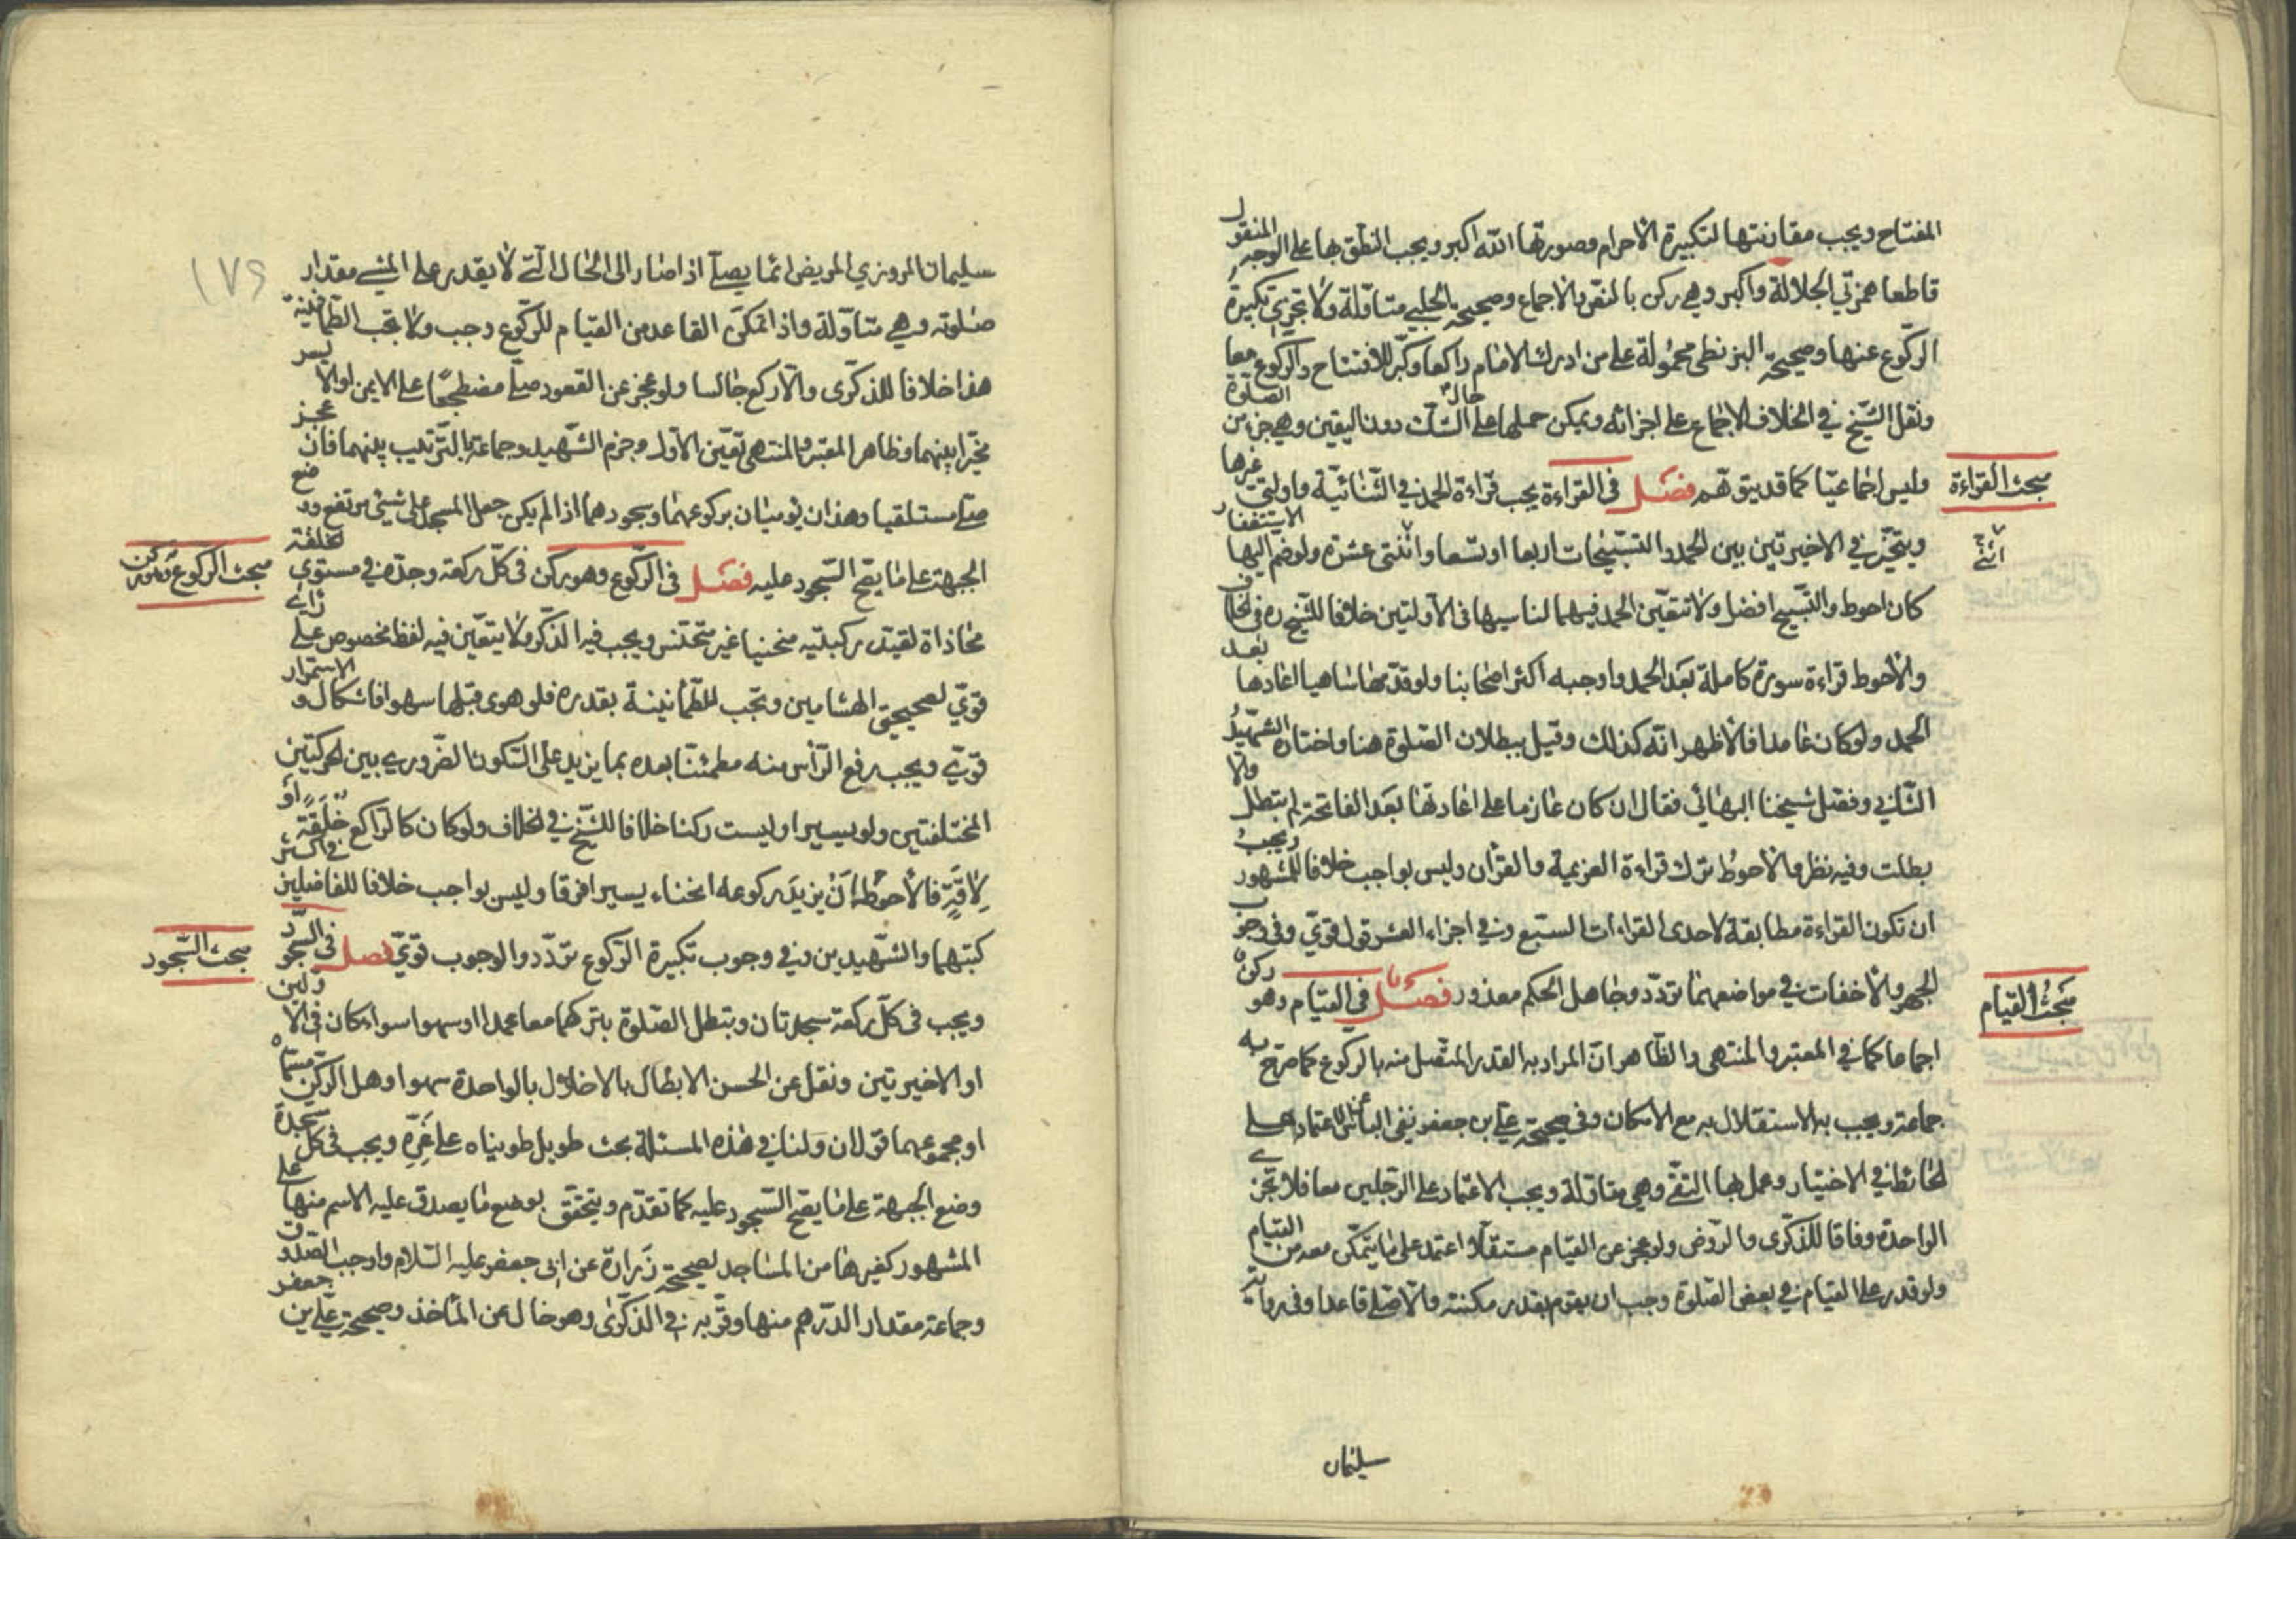 المفتاح ويجب مقارنتها لتكبيرة الاحرام وصورتها الله اكبر ويجب النطق بها على الوجه المنقول
قاطعا همزتي الجلالة واكبر وهي ركن بالنص والاجماع وصحيحة الحلبي متاولة ولا تجزي تكبيرة
الركوع عنها وصحيحة البزنطي محمولة على من ادرك الامام راكعا وكبر للافتتاح والركوع معا
ونقل الشيخ في الخلاف الاجماع على اجزائه ويمكن حملها على الشك حال الصلوة دون اليقين وهي جزء من
مبحث القراءة
وليس اجماعيا كما قد يتوهم فصل في القراءة يجب قراءة الحمد في الثنائية واوليي غيرها
ويتخير في الاخيرتين بين الحمد والتسبيحات اربعا او تسعا واثنتي عشرة ولو ضم اليها الاستغفار
كان احوط والتسبيح افضل ولا تتعين الحمد فيهما لناسيها في الاولتين خلافا للشيخ ره في الخلاف
والاحوط قراءة سورة كاملة بعد الحمد واوجبه اكثر اصحابنا ولو قدمها ساهيا اعادها بعد
الحمد ولو كان عامدا فالاظهر انه كذلك وقيل ببطلان الصلوة هنا واختاره الشهيد
الثاني وفصل شيخنا البهائي فقال ان كان عازما على اعادتها بعد الفاتحة لم يبطل والا
بطلت وفيه نظر والاحوط ترك قراءة العزيمة والقران وليس بواجب خلافا للمشهور ويجب
ان تكون القراءة مطابقة لاحدى القراءات السبع وفي اجزاء العشر قول قوي وفي وجوب
مبحث القيام
الجهر والاخفات في مواضعهما تردد وجاهل الحكم معذور فصل في القيام وهو ركن
اجماعا كما في المعتبر والمنتهى والظاهر ان المراد به القدر المتصل منه بالركوع كما صرح به
جماعة ويجب به الاستقلال به مع الامكان وفي صحيحة علي بن جعفر نفي الباس عن الاعتماد على
الحائط في الاختيار وعمل بها التقي وهي متاولة ويجب الاعتماد على الرجلين معا فلا تجزي
الواحدة وفاقا للذكرى والروض ولو عجز عن القيام مستقلا اعتمد على ما يتمكن معه من القيام
ولو قدر على القيام في بعض الصلوة وجب ان يقوم بقدر مكنته والا صلى قاعدا وفي رواية
سليمان
سليمان المروزي المريض انما يصلي اذا صار الى الحال التي لا يقدر على المشي مقدار
صلوته وهي متاولة واذا تمكن القاعد من القيام للركوع وجب ولا تجب الطمانينة
هذا خلافا للذكرى والا ركع جالسا ولو عجز عن القعود صلى مضطجعا على الايمن او الايسر
مخيرا بينهما وظاهر المعتبر والمنتهى تعين الاول وجزم الشهيد وجماعة بالترتيب بينهما فان عجز
صلى مستلقيا وهذان يوميان بركوعهما وسجودهما اذا لم يكن جعل المسجد على شيء مرتفع ووضع
الجبهة على ما يصح السجود عليه فصل في الركوع وهو ركن في كل ركعة وحده في مستوي الخلقة
محاذاة لقيته ركبتيه منحنيا غير متخنس ويجب فيه الذكر ولا يتعين فيه لفظ مخصوص على راي
قوي لصحيحتي الهشامين وتجب الطمانينة بقدره فلو هوى قبلها سهوا فاشكال والاستمرار
قوي ويجب رفع الراس منه مطمئنا بعده بما يزيد على السكون الضروري بين الحركتين
المختلفتين ولو يسيرا وليست ركنا خلافا للشيخ في الخلاف ولو كان كالراكع خلقة او
لافة فالاحوط ان يزيد ركوعه انحناء يسيرا فرقا وليس بواجب خلافا للفاضلين في اكثر
مبحث السجود
كتبهما والشهيدين وفي وجوب تكبيرة الركوع تردد والوجوب قوي فصل في السجود
ويجب في كل ركعة سجدتان وتبطل الصلوة بتركهما معا عمدا او سهوا سواء كان في الاولين
او الاخيرتين ونقل عن الحسن الابطال بالاخلال بالواحدة سهوا وهل الركن مسماه
او مجموعهما قولان ولنا في هذه المسئلة بحث طويل طويناه على غره ويجب في كل سجدة
وضع الجبهة على ما يصح السجود عليه كما تقدم ويتحقق بوضع ما يصدق عليه الاسم منها على
المشهور كغيرها من المساجد لصحيحة زرارة عن ابي جعفر عليه السلام واوجب الصدوق
وجماعة مقدار الدرهم منها وقربه في الذكرى وهو خال عن الماخذ وصحيحة علي بن جعفر